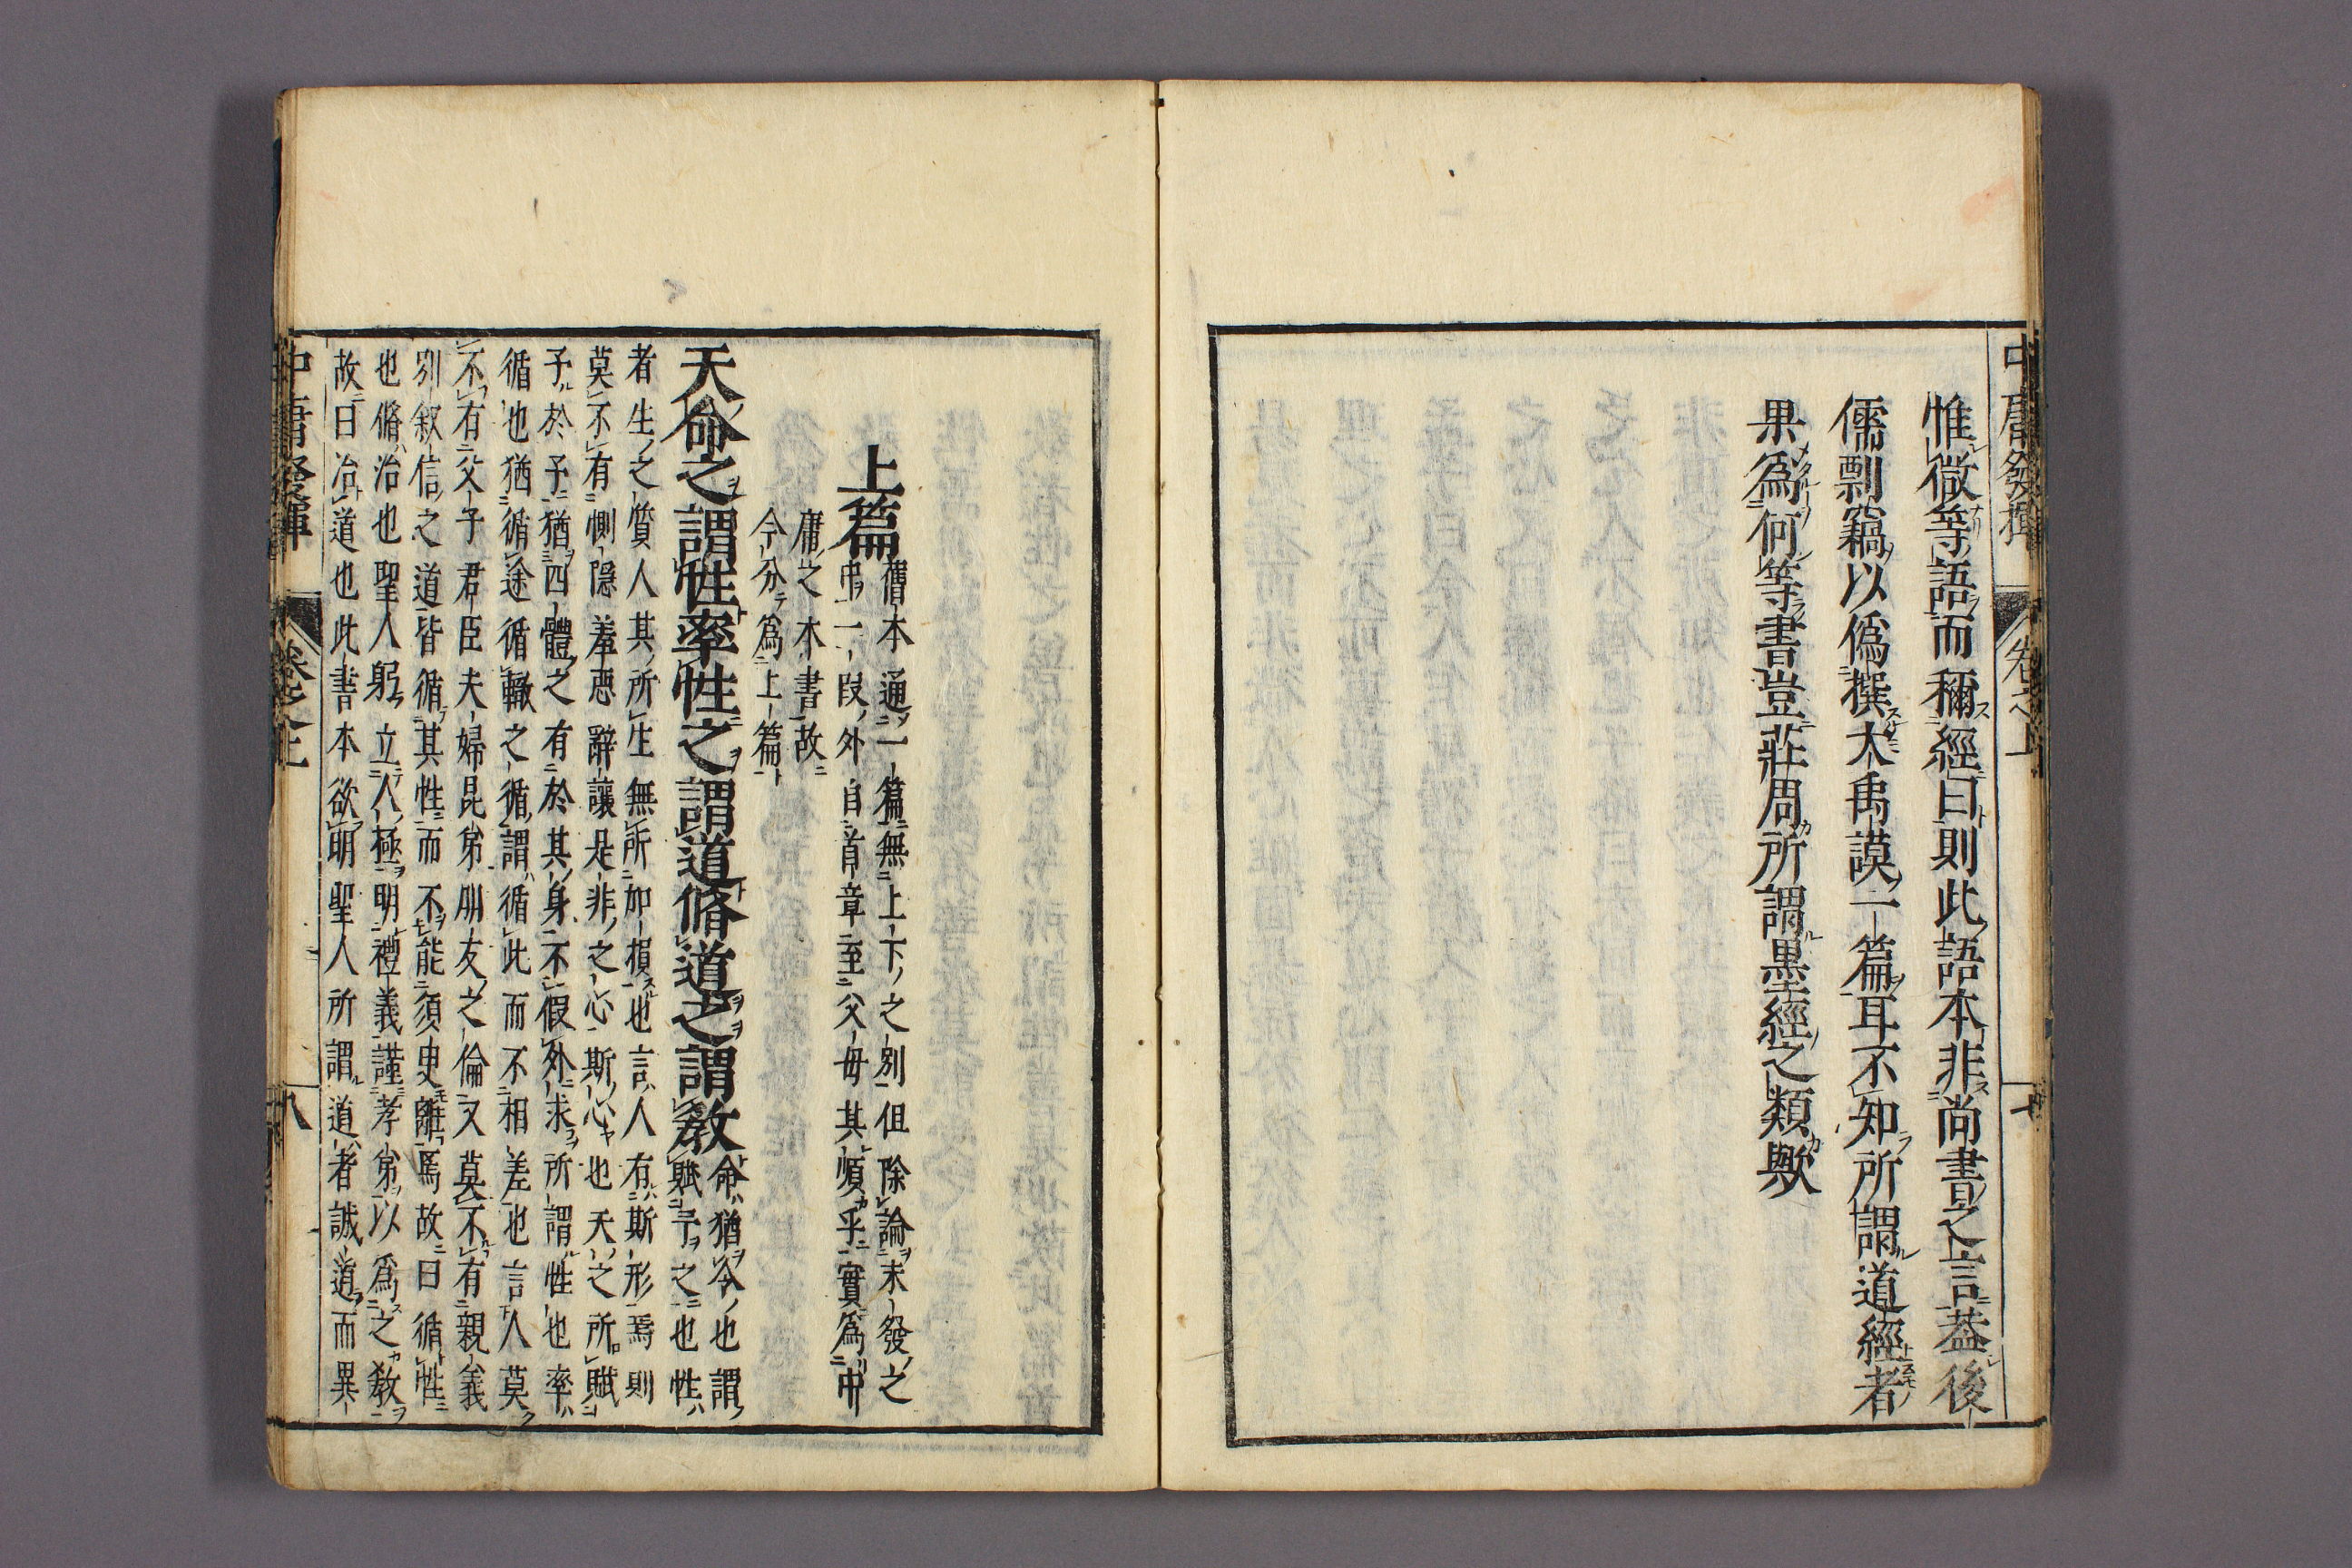 中庸發揮 卷之上 七
惟微等語而稱經曰則此語本非尚書之言蓋後
儒剽竊以僞撰大禹謨一篇耳不知所謂道經者
果爲何等書豈莊周所謂墨經之類歟
上篇
舊本通一篇無上下之別但除論未發之
中一段外自首章至父母其順乎實爲中
庸之本書故
今分爲上篇
天命之謂性率性之謂道脩道之謂教
命猶令也謂
賦予之也性
者生之質人其所生無所加損也言人有斯形焉則
莫不有惻隱羞惡辭讓是非之心斯心也天之所賦
予於予猶四體之有於其身不假外求所謂性也率
循也猶循途循轍之循謂循此而不相差也言人莫
不有父子君臣夫婦昆弟朋友之倫又莫不有親義
別叙信之道皆循其性而不能須臾離焉故曰循性
也脩治也聖人躬立人極明禮義謹孝弟以爲之教
故曰治道也此書本欲明聖人所謂道者誠道而異
中庸發揮 卷之上 八